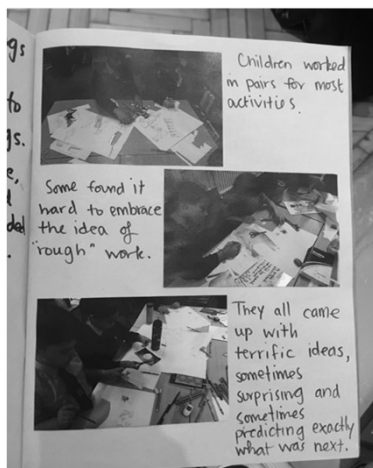 gs
to
gs.
e,
ded
Children worked
in pairs for most
activities.
Some found it
hard to embrace
the idea of
"rough" work.
They all came
up with
terrific ideas,
sometimes
surprising and
sometimes
predicting exactly
what was next.